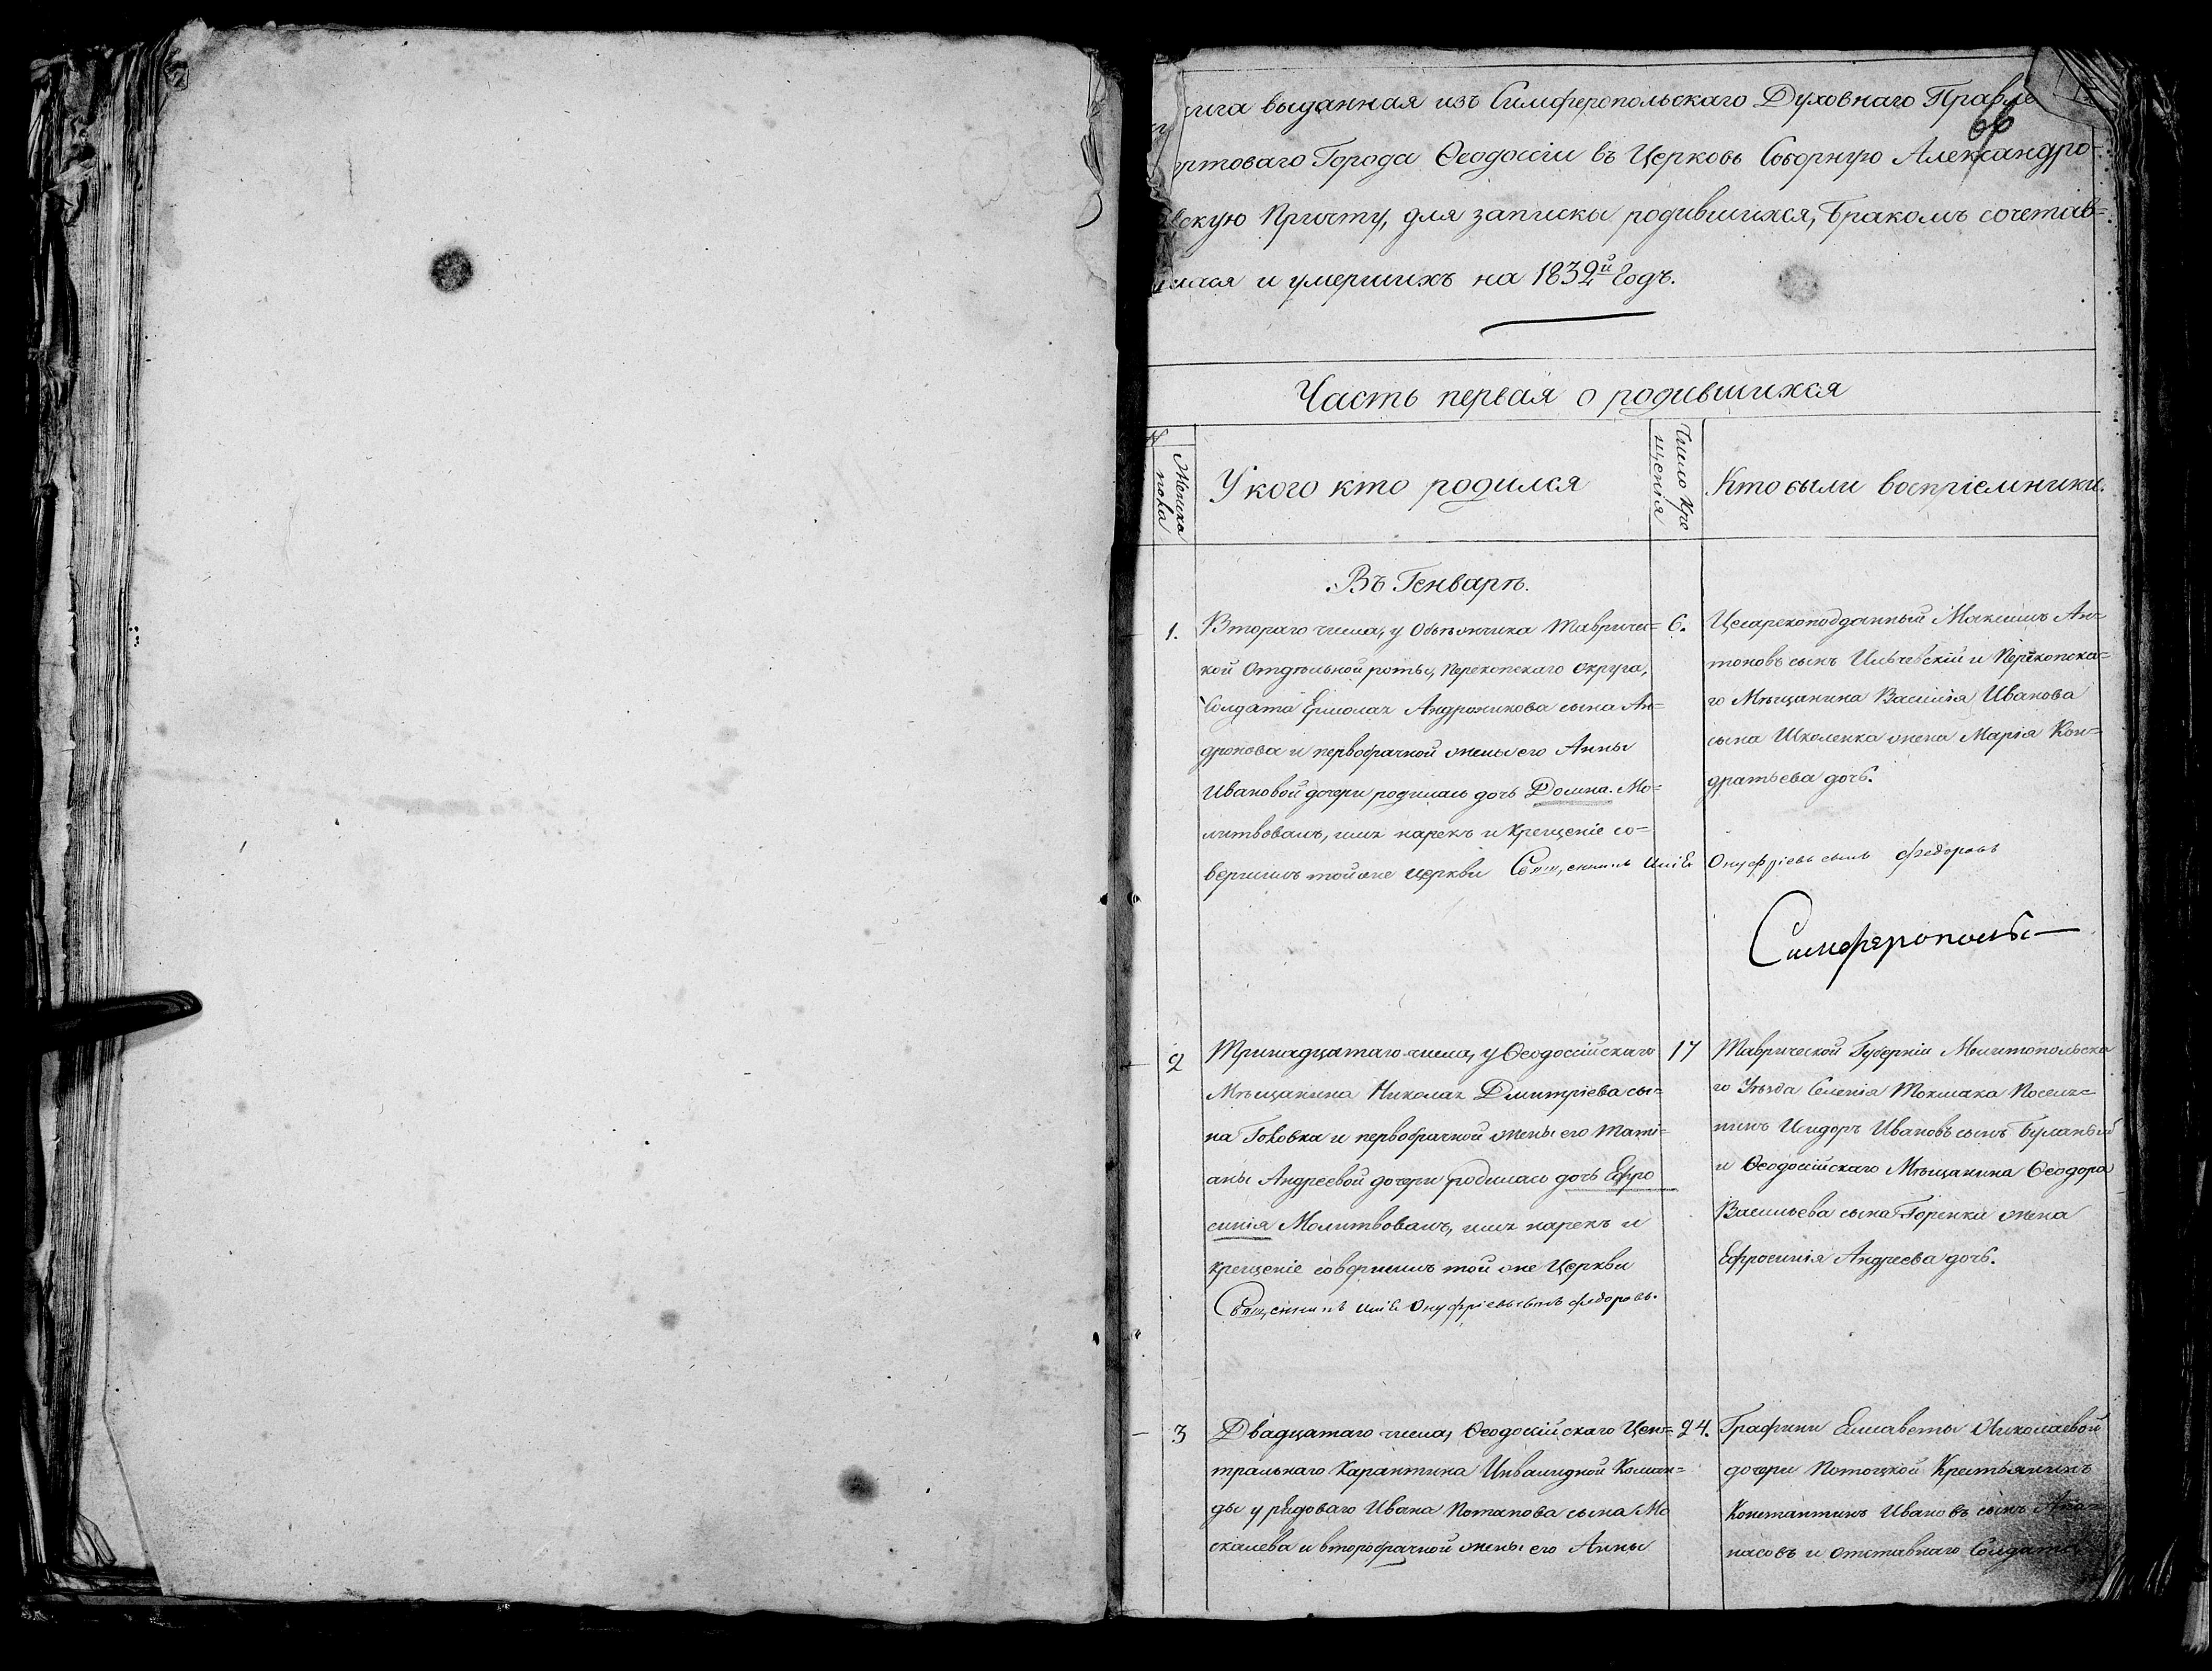 66
нига выданная изъ Симферопольскаго Духовнаго Правле
ортоваго Города Ѳеодосіи въ Церковь Соборную Александро-
вскую Причту, для записки родившихся, бракомъ сочетав=
шихся и умершихъ на 1832й Годъ.
Часть первая о родившихся
№
Женска
пола
У кого кто родился
Число Кре
щенія
Кто были воспріемники.
Въ Генварѣ.
1.
Втораго числа, у Объѣзчика Тавричес=
кой Отдѣльной роты, Перекопскаго округа,
Солдата Ермолая Андроникова сына Ан=
дронова и первобрачной жены его Анны
Ивановой дочери родилась дочь Домна. Мо=
литвовалъ, имя нарекъ и Крещеніе со=
вершилъ тойже Церкви Священникъ Онуфріевъ сынъ Федоровъ
6.
Цесарскоподданный Максимъ Ан=
тоновъ сынъ Ильчевскій и Перекопска=
го Мѣщанина Василія Иванова
сына Школенка жена Марія Кон=
дратьева дочь.
Симферополь
2
Тринадцатаго числа, у Ѳеодосійскаго
Мѣщанина Николая Дмитріева сы=
на Головка и первобрачной жены его Таті=
аны Андреевой дочери родилась дочь Ефро
синія Молитвовалъ, имя нарекъ и
крещеніе совершилъ той же Церкви
Священникъ Онуфріевъ сынъ Федоровъ.
17
Таврической Губерніи Мелитопольска
го Уѣзда Селенія Токмака Поселя=
нинъ Исидоръ Ивановъ сынъ Буланый
и Ѳеодосійскаго Мѣщанина Ѳеодора
Васильева сына Горенки жена
Ефросинія Андреева дочь.
3
Двадцатаго числа, Ѳеодосійскаго Цен=
тральнаго Карантина Инвалидной Коман=
ды у рядоваго Ивана Потапова сына Мо
скалева и второбрачной жены его Анны
24.
Графини Елисаветы Николаевой
дочери Потоцкой Крестьянинъ
Константинъ Ивановъ сынъ
насовъ и отставнаго Солдата